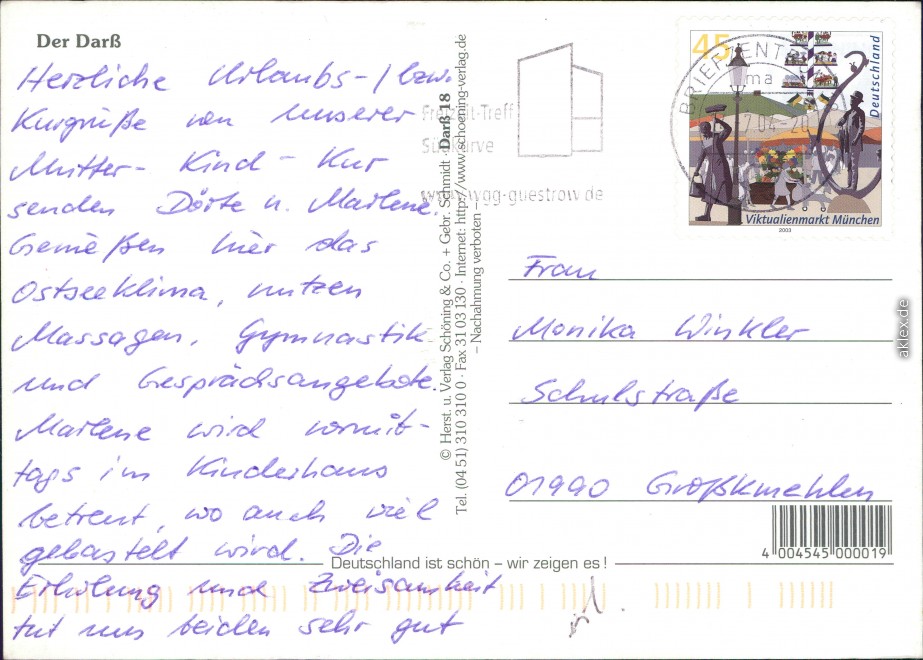 Der Darß
Herzliche Urlaubs-/bzw.
Kurgrüße von unserer
Mutter-Kind-Kur
senden Dörte u. Marlene.
Genießen hier das
Ostseeklima, nutzen
Massagen, Gymnastik
und Gesprächsangebote.
Marlene wird vormit-
tags im Kinderhaus
betreut, wo auch viel
gebastelt wird. Die
Erholung und Zweisamkeit
tut uns beiden sehr gut
© Herst. u. Verlag Schöning & Co. + Gebr. Schmidt · Darß 18
Tel. (04 51) 310 310 0 · Fax 31 03 130 · Internet: http://www.schoening-verlag.de
– Nachahmung verboten –
Freizeit-Treff
Südkurve
www.wgg-guestrow.de
BRIEFZENTR
45
Deutschland
Viktualienmarkt München
2003
Frau
Monika Winkler
Schulstraße
01990 Großkmehlen
4 004545 000019
Deutschland ist schön – wir zeigen es !
aklex.de